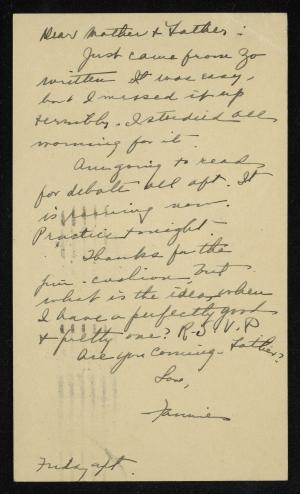 Dear Mother & Father:
Just came from Zo
written. It was easy,
but I missed it up
terribly. I studied all
morning for it.
Am going to read
for debate all aft. It
is raining now.
Practice tonight.
Thanks for the
pin-cushion, but
what is the idea, when
I have a perfectly good
& pretty one? R.S.V.P
Are you coming - Father?
Love,
Fannie
Friday aft.